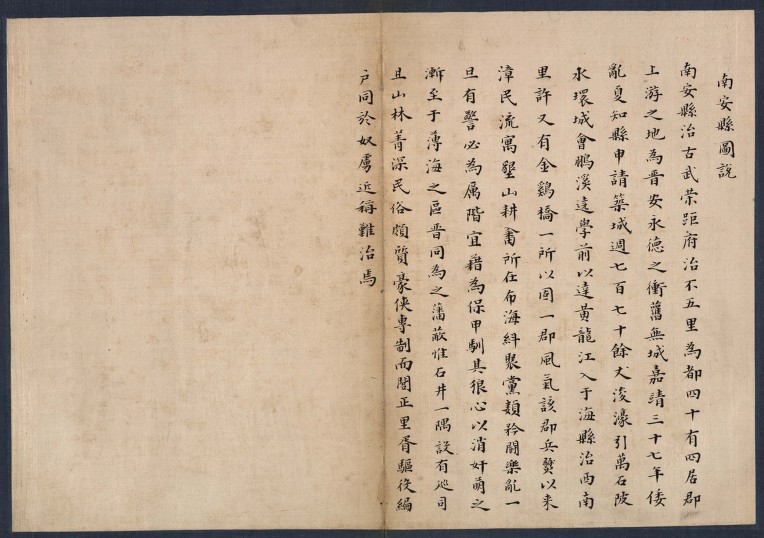 南安縣圖說
南安縣治古武榮距府治不五里為都四十有四居郡
上游之地為晉安永德之衝舊無城嘉靖三十七年倭
亂夏知縣申請築城週七百七十餘丈浚濠引萬石陂
水環城會鵬溪遶學前以達黃龍江入于海縣治西南
里許又有金鷄橋一所以固一郡風氣該郡兵燹以來
漳民流寓墾山耕畬所在布海糾聚黨類矜鬪樂亂一
旦有警必為厲階宜藉為保甲馴其狠心以消奸萌之
漸至于薄海之區晉同為之藩蔽惟石井一隅設有巡司
且山林菁深民俗頗質豪俠專制而閭正里胥驅役編
戶同於奴虜近稱難治焉